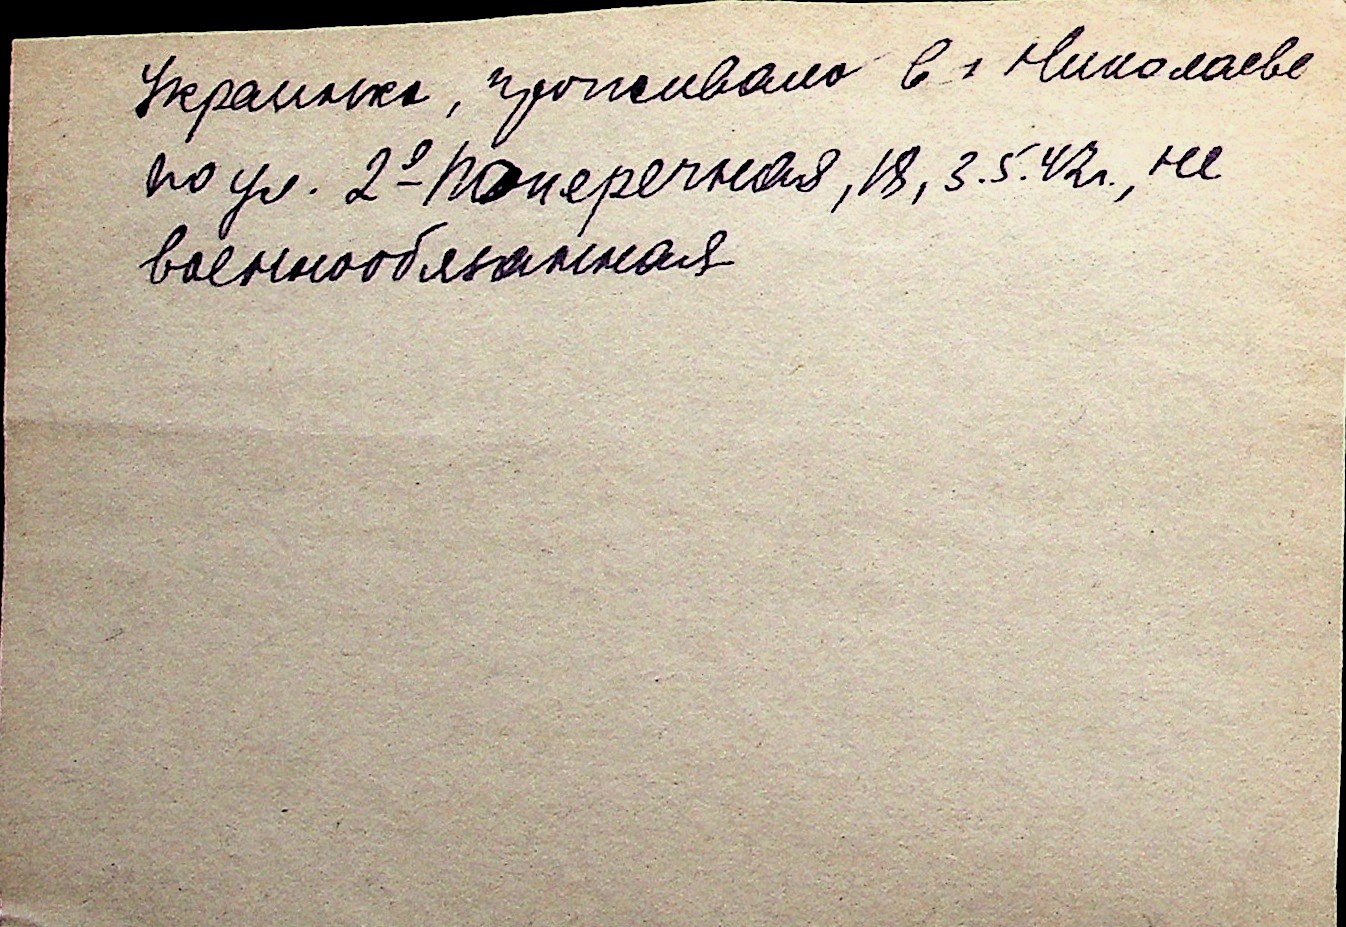 Украинка, проживала в г Николаеве
по ул. 2я Поперечная, 18, 3.5.42г., не
военнообязанная